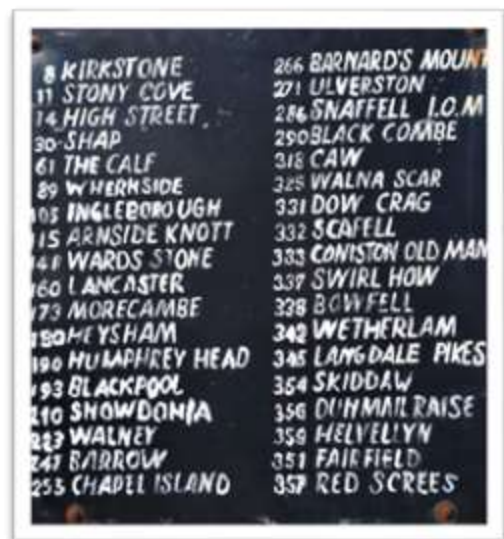 8 KIRKSTONE
11 STONY COVE
14 HIGH STREET
30 SHAP
61 THE CALF
89 WHERNSIDE
105 INGLEBOROUGH
115 ARNSIDE KNOTT
141 WARDS STONE
160 LANCASTER
173 MORECAMBE
180 HEYSHAM
190 HUMPHREY HEAD
193 BLACKPOOL
210 SNOWDONIA
227 WALNEY
247 BARROW
253 CHAPEL ISLAND
266 BARNARD'S MOUNT
271 ULVERSTON
286 SNAFFELL I.O.M
290 BLACK COMBE
318 CAW
325 WALNA SCAR
331 DOW CRAG
332 SCAFELL
333 CONISTON OLD MAN
337 SWIRL HOW
338 BOWFELL
342 WETHERLAM
345 LANGDALE PIKES
354 SKIDDAW
356 DUNMAIL RAISE
359 HELVELLYN
351 FAIRFIELD
357 RED SCREES